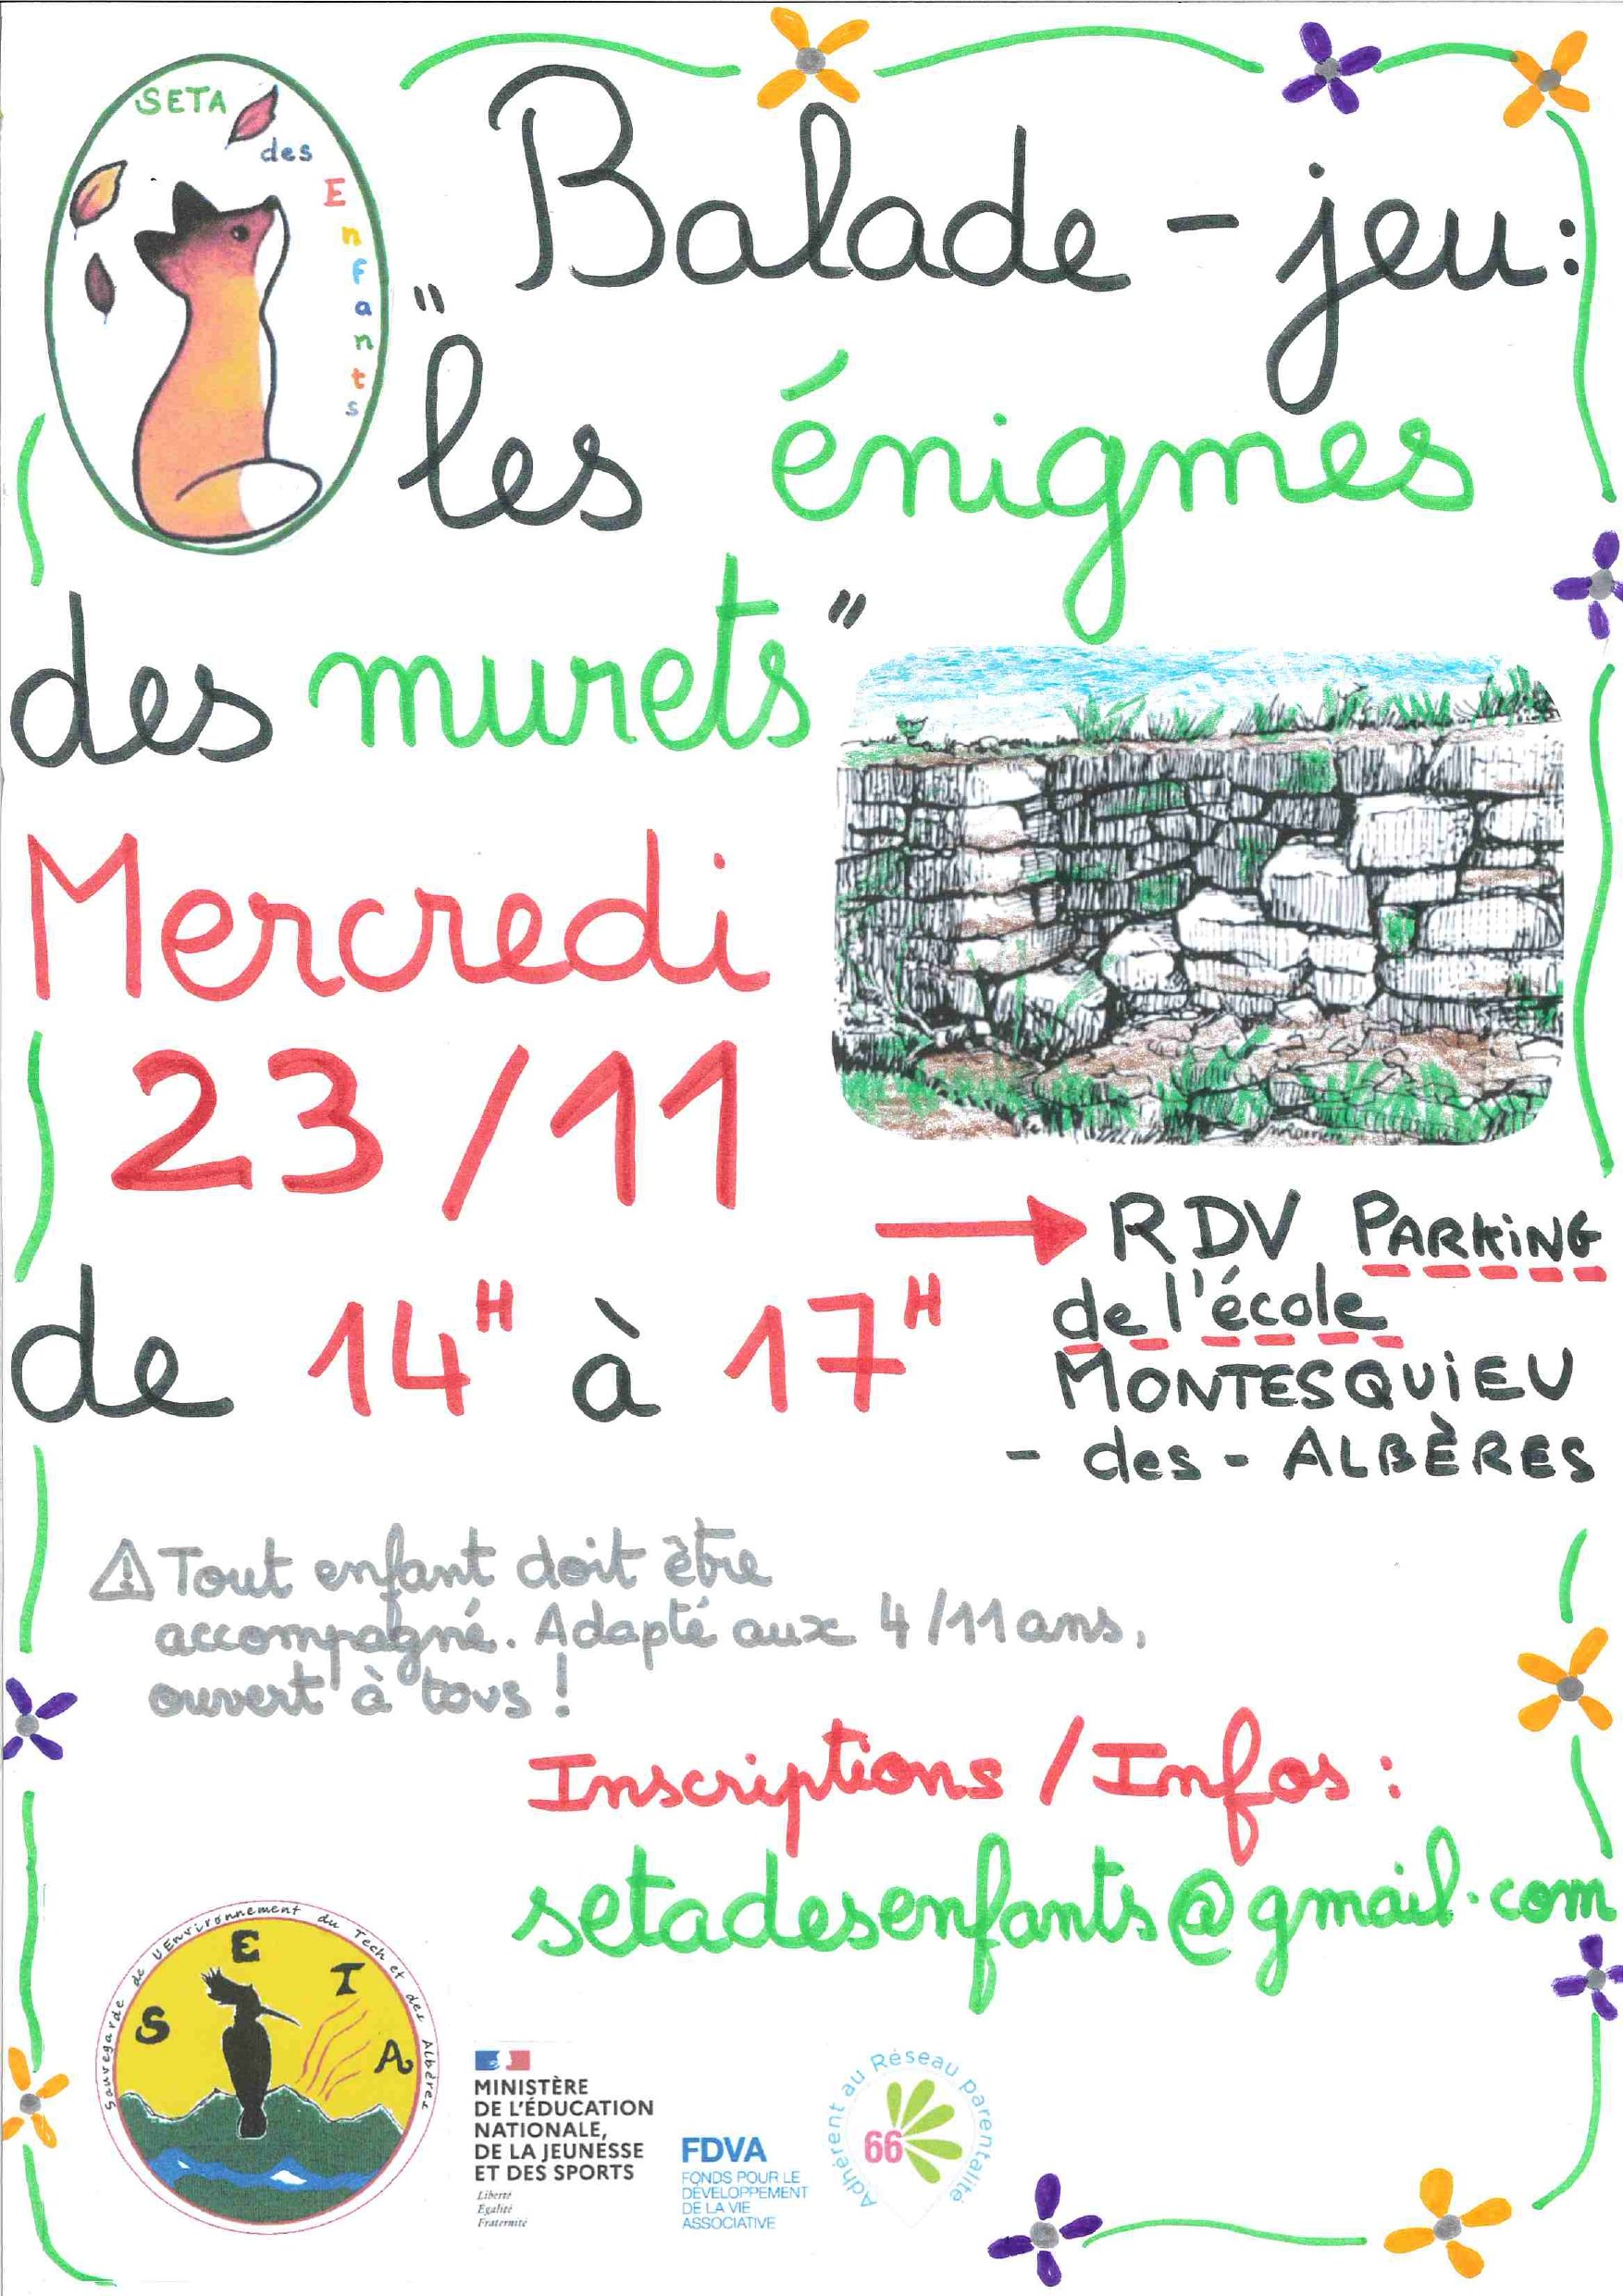 SETA
des
Enfants
Balade - jeu :
"les énigmes
des murets"
Mercredi
23/11
de 14H à 17H
RDV PARKiNG
de l'école
MONTESQUiEU
- des - ALBÈRES
⚠ Tout enfant doit être
accompagné. Adapté aux 4/11 ans,
ouvert à tous !
Inscriptions / Infos :
setadesenfants@gmail.com
Sauvegarde de l'Environnement du Tech et des Albères
SETA
MINISTÈRE
DE L'ÉDUCATION
NATIONALE,
DE LA JEUNESSE
ET DES SPORTS
Liberté
Egalité
Fraternité
FDVA
FONDS POUR LE
DÉVELOPPEMENT
DE LA VIE
ASSOCIATIVE
Adhérent au Réseau parentalité
66